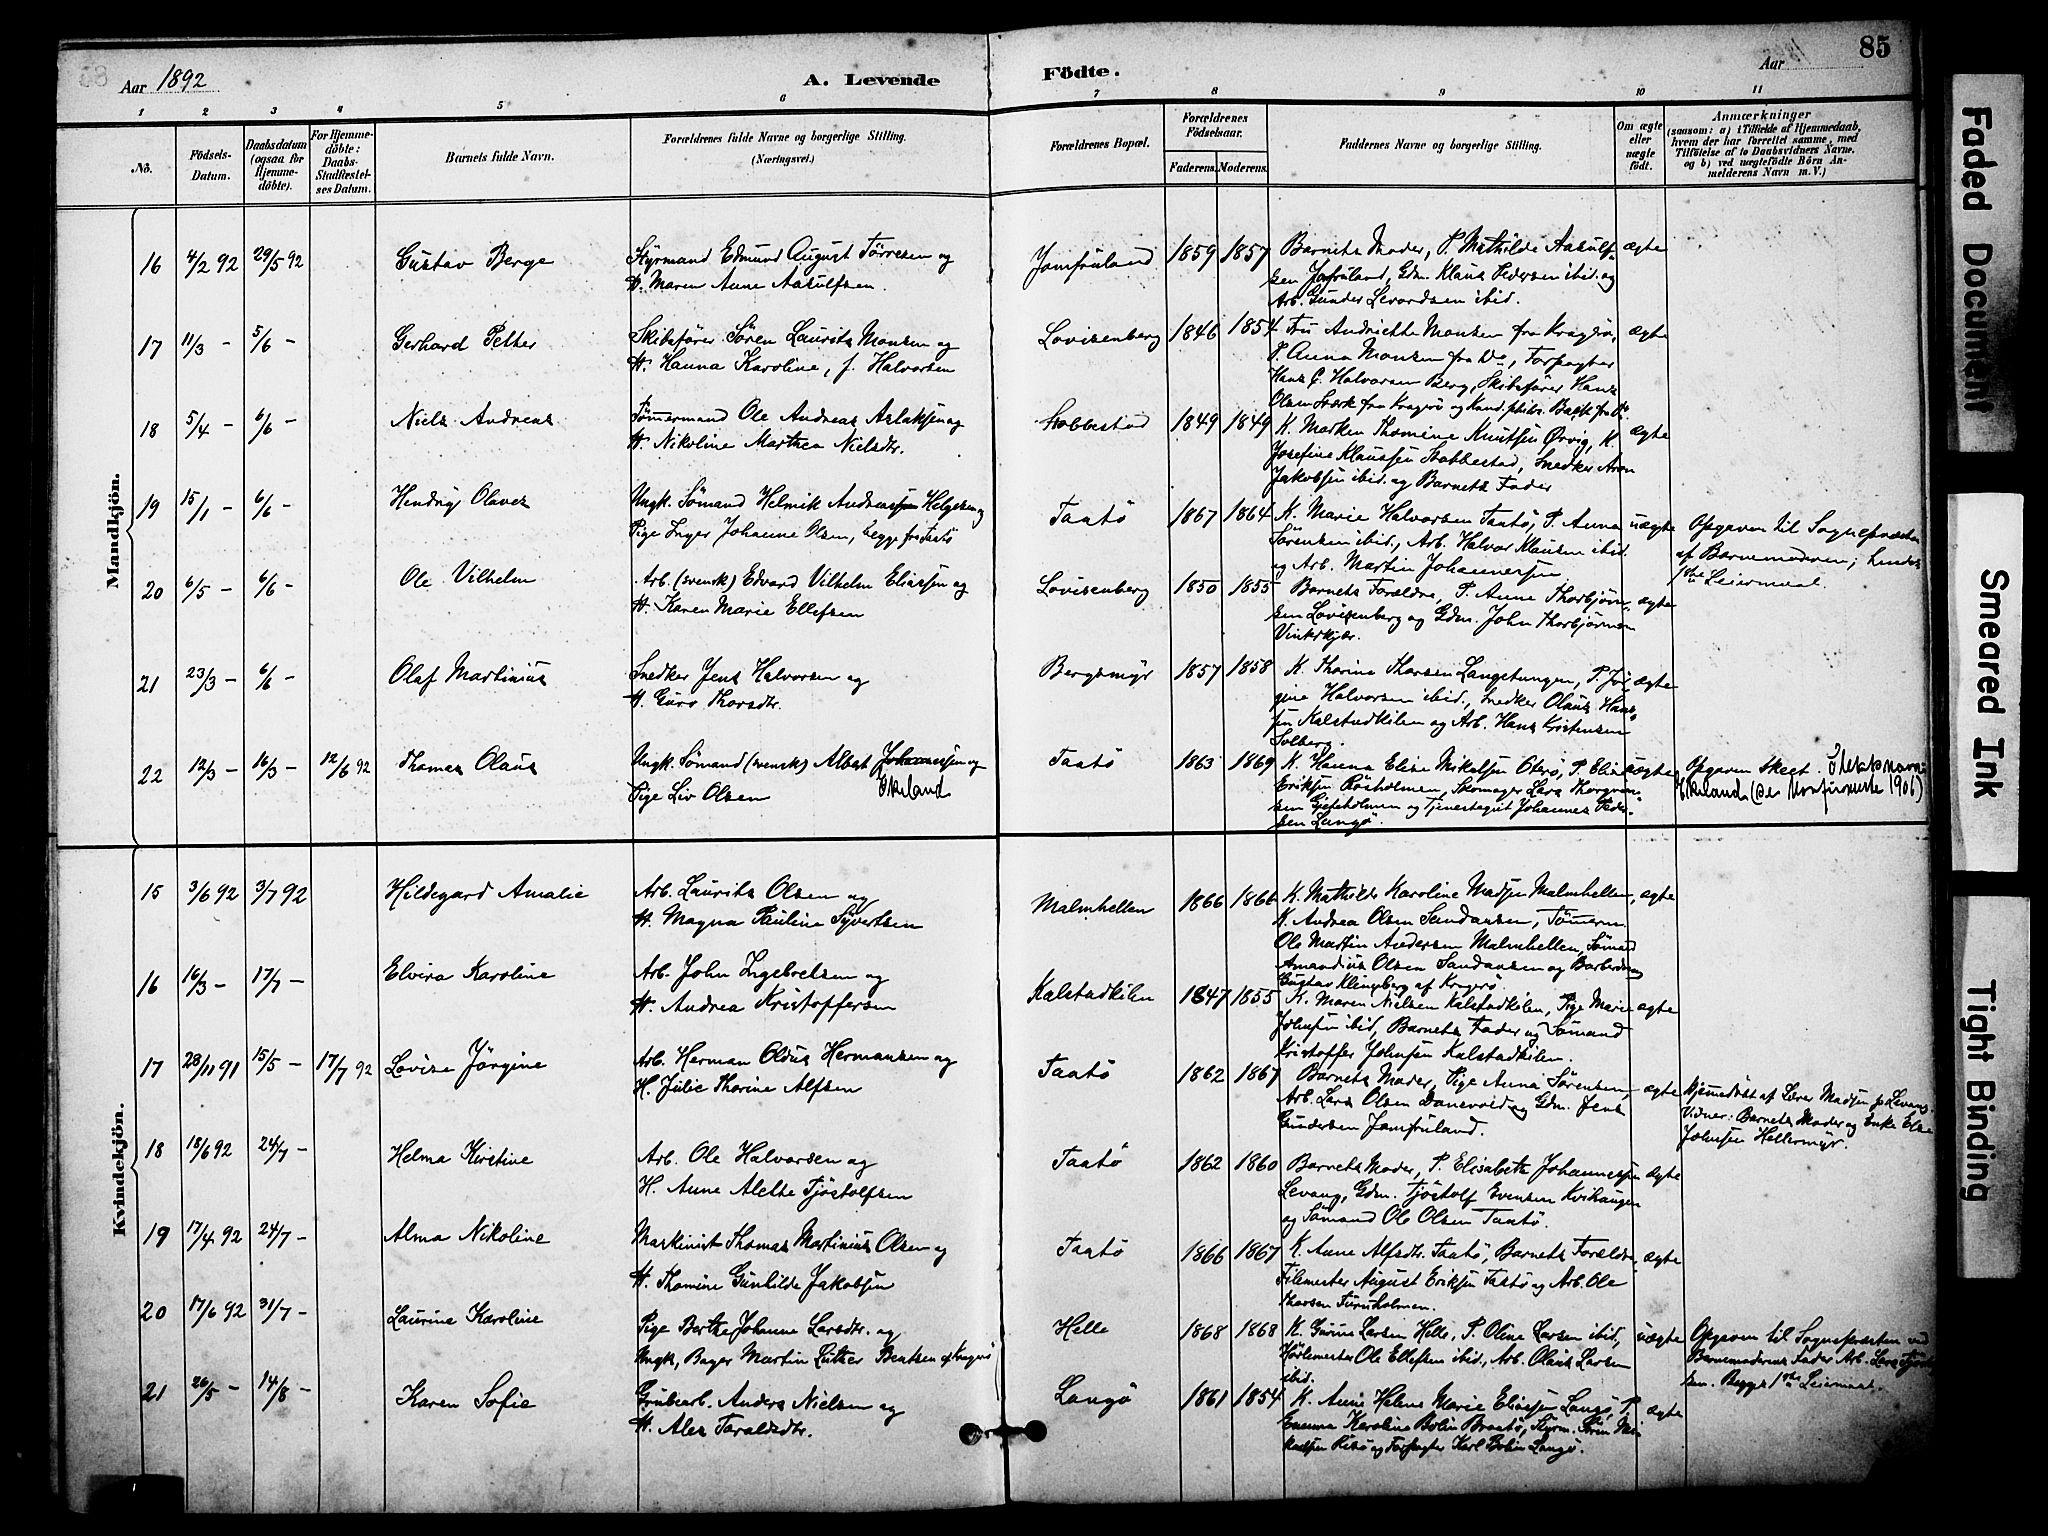 Aar 1892
A. Levende
Födte.
Aar
85
1 2 3 4 5 6 7 8 9 10 11
No.
Födsels-
Datum.
Daabsdatum
(ogsaa for
Hjemme-
döbte).
For Hjemme-
döbte:
Daabs-
Stadfæstel-
ses Datum.
Barnets fulde Navn.
Forældrenes fulde Navne og borgerlige Stilling.
(Næringsvei.)
Forældrenes Bopæl.
Forældrenes
Födselsaar.
Faderens. Moderens.
Faddernes Navne og borgerlige Stilling.
Om ægte
eller
uægte
födt.
Anmærkninger
(saasom: a) i Tilfælde af Hjemmedaab,
hvem der har forrettet samme, med
Tilföielse af to Daabsvidners Navne,
og b) ved uægtefödte Börn An-
melderens Navn m.V.)
Mandkjön.
16 4/2 92 29/5 92 Gustav Berge
Styrmand Edmund August Törresen og
H. Maren Anne Aasulfsen.
Jomfruland 1859 1857
Barnets Moder, P. Mathilde Aasulf-
sen Jomfruland, Gdm. Klaus Pedersen ibid. og
Arb. Gunder Levordsen ibid.
ægte
17 11/3 - 5/6 - Gerhard Petter
Skibsförer Sören Laurits Monsen og
H. Hanna Karoline, f. Halvorsen
Lovisenberg 1846 1854
Fru Andrikke Monsen fra Kragerö,
P. Anna Monsen fra Do, Forpagter
Hans C. Halvorsen Berg, Skibsförer Hans
Olsen Stærk fra Kragerö og Kand. philos.
ægte
18 5/4 - 6/6 - Niels Andreas
Tömermand Ole Andreas Aslaksen og
H. Nikoline Marthea Nielsdtr.
Stabbestad 1849 1849
K. Marken Thomine Knutsen Ørvig, K.
Josefine Klaussen Stabbestad, Snedker Aron
Jakobsen ibid. og Barnets Fader
ægte
19 15/1 - 6/6 - Hendrig Olaves
Ungk. Sömand Helmik Andreassen Helgesen og
Pige Inger Johanne Olsen, begge fra Taatö
Taatö 1867 1864
K. Marie Halvorsen Taatö, P. Anna
Sörensen ibid., Arb. Halvor Klausen ibid.
og Arb. Martin Johannesen
uægte
Opgaven til Sognepræsten
af Barnemoderen; hendes
1ste Leiermaal.
20 6/5 - 6/6 - Ole Vilhelm
Arb. (svensk) Edvard Vilhelm Eliassen og
H. Karen Marie Ellefsen
Lovisenberg 1850 1855
Barnets Forældre, P. Anne Thorbjörn-
sen Lovisenberg og Gdm. John Thorbjörnsen
Vinkskjær.
ægte
21 23/3 - 6/6 - Olaf Martinius
Snedker Jens Halvorsen og
H. Guro Thorsdtr.
Bergsmyr 1857 1858
K. Thorine Thorsen Langetangen, P. Jör-
gine Halvorsen ibid., Snedker Olaus Hans-
sen Kalstadkilen og Arb. Hans Kristensen
Solberg.
ægte
22 12/3 - 16/3 - 12/6 92 Thomas Olaus
Ungk. Sömand (svensk) Albert Johannessen og
Pige Liv Olsen
Ekeland
Taatö 1863 1869
K. Hanna Elise Mikalsen Oterö, P. Elise
Eriksen Rösholmen, Skomager Lars Thorgrim-
sen Gjeseholmen og Tjenestegut Johannes Peder-
sen Langö.
uægte
Opgaven skeet. Slektsnavn:
Ekeland (se Konfirmerte 1906)
Kvindekjön.
15 3/6 92 3/7 92 Hildegard Amalie
Arb. Laurits Olsen og
H. Magna Pauline Syvertsen
Malmhellen 1866 1866
K. Mathilde Karoline Madsen Malmhellen,
K. Andrea Olsen Sandaasen, Tömerm.
Ole Martin Andersen Malmhellen, Sömand
Amandius Olsen Sandaasen og Barberdreng
Gustav Klingberg af Kragerö.
ægte
16 16/3 - 17/7 - Elvira Karoline
Arb. John Ingebretsen og
H. Andrea Kristoffersen
Kalstadkilen 1847 1855
K. Maren Nielsen Kalstadkilen, Pige Marie
Johnsen ibid, Barnets Fader og Sömand
Kristoffer Johnsen Kalstadkilen.
ægte
17 28/11 91 15/5 - 17/7 92 Lovise Jörgine
Arb. Herman Olaus Hermansen og
H. Julie Thorine Alfsen
Taatö 1862 1867
Barnets Moder, Pige Anna Sörensen,
Arb. Lars Olsen Danevold og Gdm. Jens
Gundersen Jomfruland.
ægte
Hjemmedöbt af Lærer Madsen paa Levang.
Vidner: Barnets Moder og Enke Else
Johnsen Hellermyr.
18 18/6 92 24/7 - Helma Kirstine
Arb. Ole Halvorsen og
H. Anne Alette Tjöstolfsen
Taatö 1862 1860
Barnets Moder, P. Elisabeth Johannessen
Levang, Gdm. Tjöstolf Evensen Kvihaugen
og Sömand Ole Olsen Taatö.
ægte
19 17/4 92 24/7 - Alma Nikoline
Maskinist Thomas Martinius Olsen og
H. Thomine Gunhilde Jakobsen
Taatö 1866 1867
K. Anne Alfsdtr. Taatö, Barnets Forældre,
Filemester August Eriksen Taatö og Arb. Ole
Thorsen Furuholmen.
ægte
20 17/6 92 31/7 - Laurine Karoline
Pige Berthe Johanne Larsdtr. og
Ungk, Bager Martin Luther Bentsen af Kragerö
Helle 1868 1868
K. Gurine Larsen Helle, P. Oline Larsen ibid,
Hövlemester Ole Ellefsen ibid, Arb. Olaus Larsen
ibid.
uægte
Opgaven til Sognepræsten ved
Barnemoderens Fader Arb. Lars
sen. Begges 1ste Leiermaal.
21 26/5 - 14/8 - Karen Sofie
Grubearb. Anders Nielsen og
H. Ales Taraldsdtr.
Langö 1861 1854
K. Anne Helene Marie Eliassen Langö, P.
Emma Karoline Bolin Braatö, Styrm. Sören Mi-
kalsen Risö og Forpagter Karl Bolin Langö.
ægte
Faded Document
Smeared Ink
Tight Binding